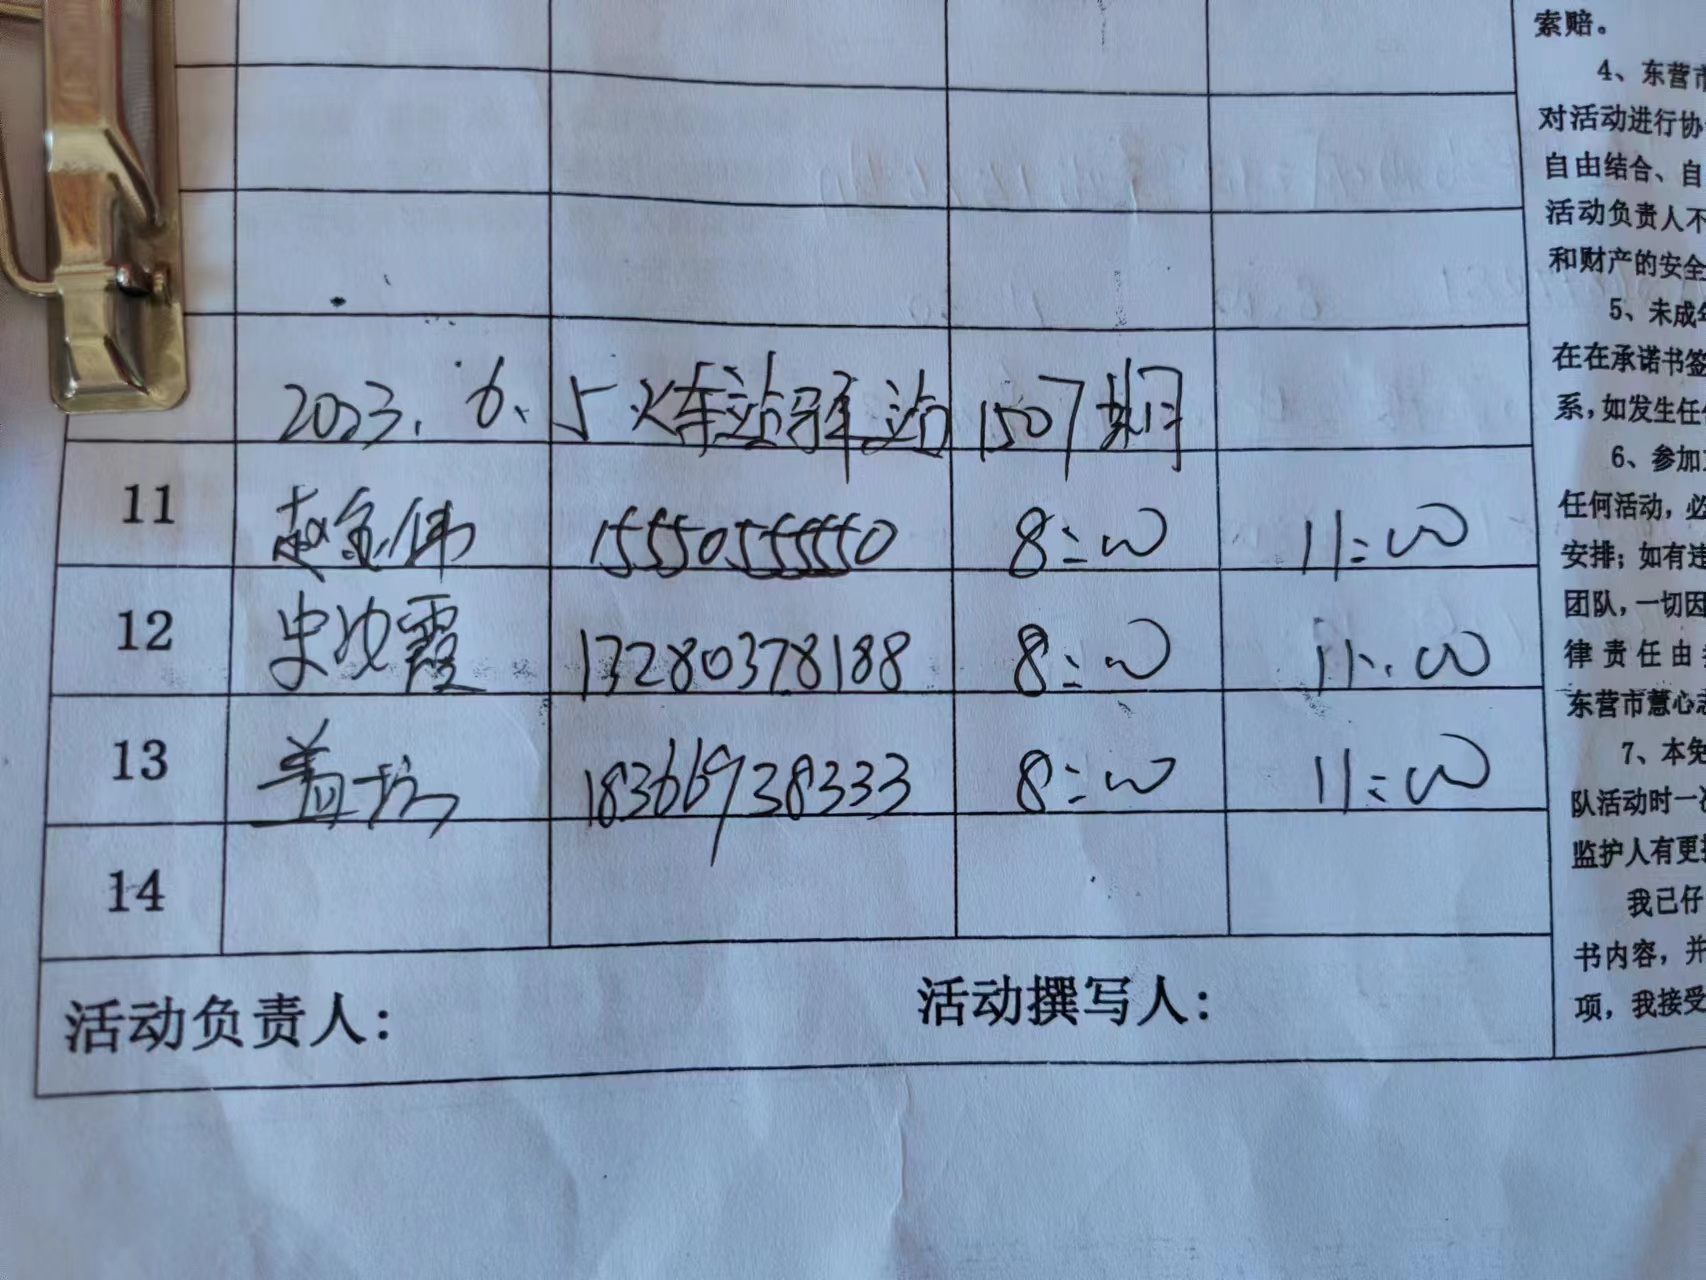 2023.6.5火车站驿站1507期
11 赵金伟 15550555550 8:00 11:00
12 史 霞 13280378188 8:00 11:00
13 盖 18366938333 8:00 11:00
14
活动负责人: 活动撰写人:
索赔。
4、东营市
对活动进行协
自由结合、自
活动负责人不
和财产的安全
5、未成年
在在承诺书签
系,如发生任
6、参加
任何活动,必
安排;如有违
团队,一切因
律责任由
东营市慧心志
7、本免
队活动时一
监护人有更
我已仔
书内容,并
项,我接受